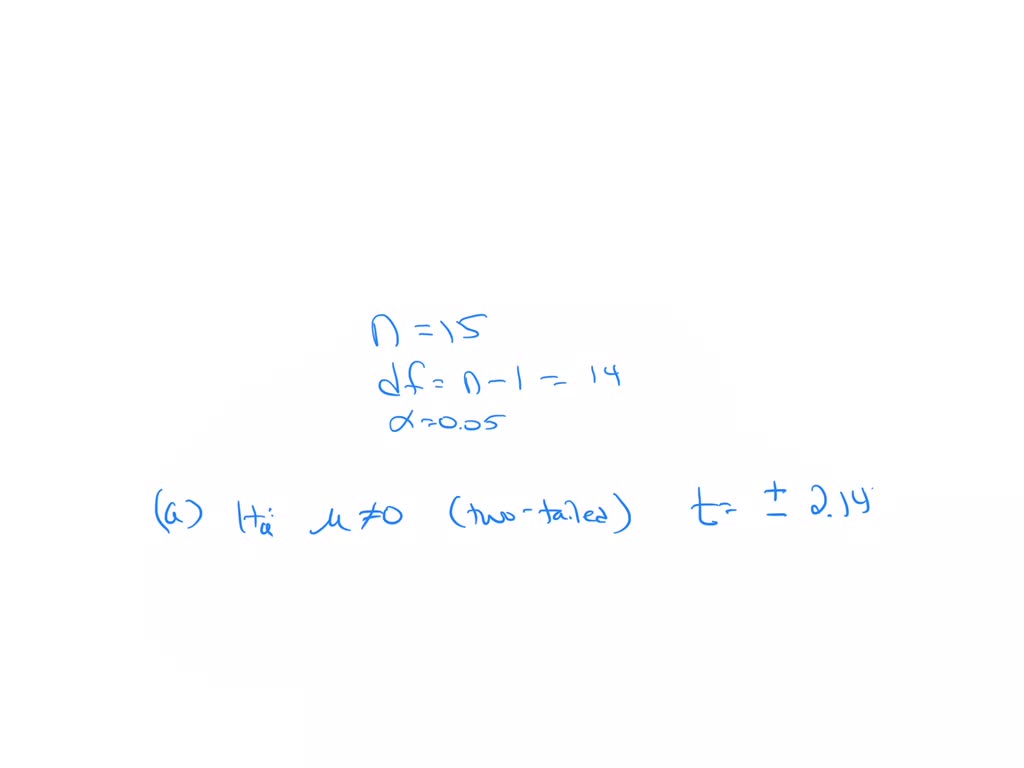 n = 15
df = n - 1 = 14
α = 0.05
(a) Ha: μ ≠ 0 (two-tailed) t = ± 2.14